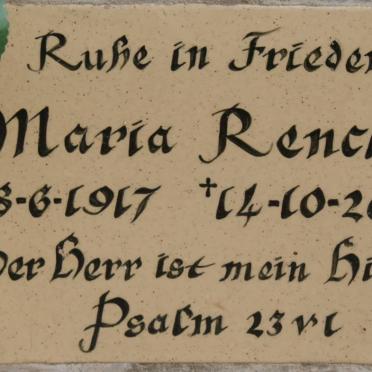 Ruhe in Frieden
Maria Renc
8-6-1917 †14-10-20
Der Herr ist mein Hi
Psalm 23 v1